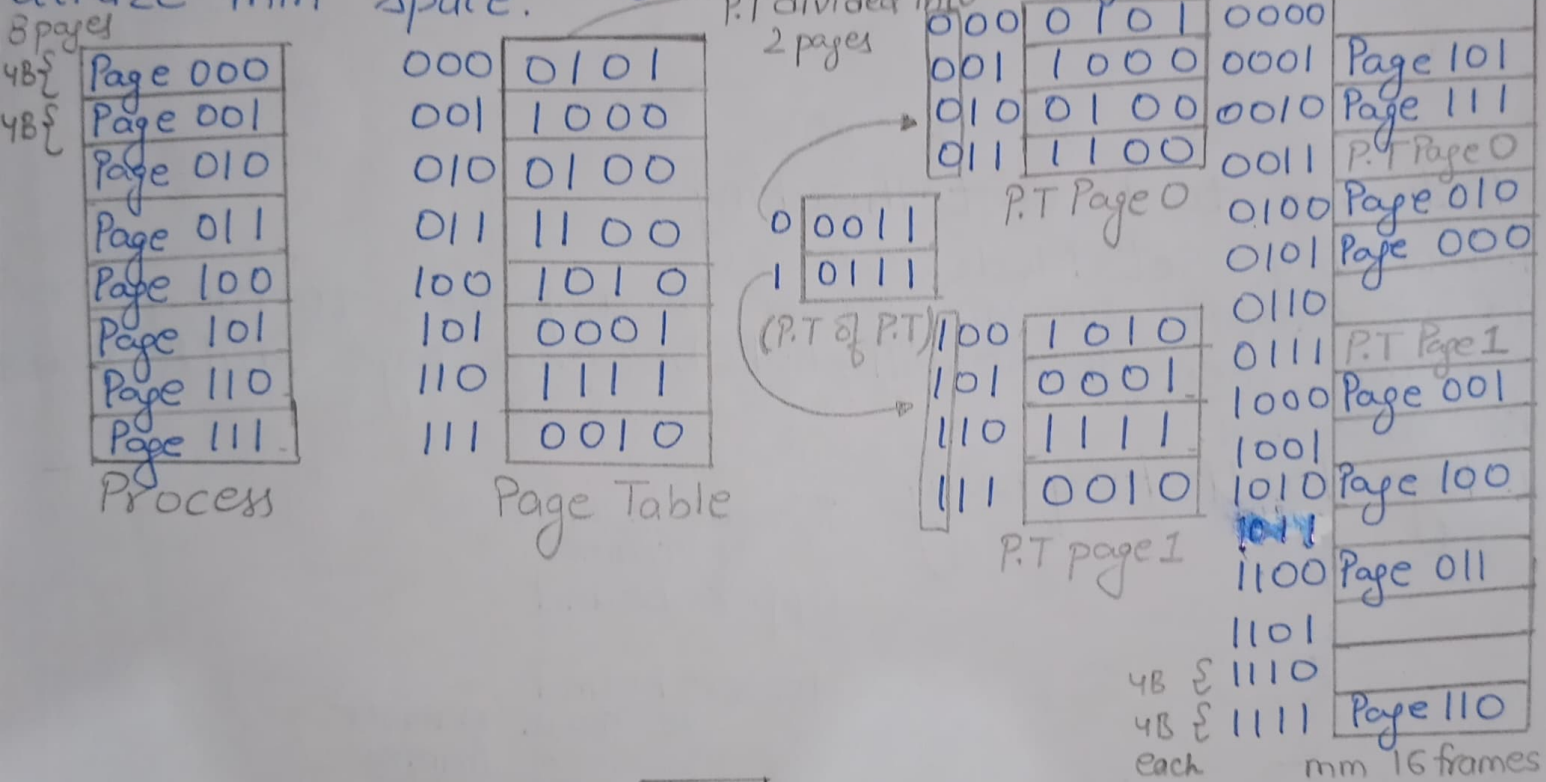 mm space.
8 pages
4B{ Page 000
4B{ Page 001
Page 010
Page 011
Page 100
Page 101
Page 110
Page 111
Process
000 0101
001 1000
010 0100
011 1100
100 1010
101 0001
110 1111
111 0010
Page Table
P.T divided into
2 pages
0 0011
1 0111
(P.T of P.T)
000 0101
001 1000
010 0100
011 1100
P.T Page 0
100 1010
101 0001
110 1111
111 0010
P.T page 1
0000
0001 Page 101
0010 Page 111
0011 P.T Page 0
0100 Page 010
0101 Page 000
0110
0111 P.T Page 1
1000 Page 001
1001
1010 Page 100
1011
1100 Page 011
1101
4B { 1110
4B { 1111 Page 110
each mm 16 frames